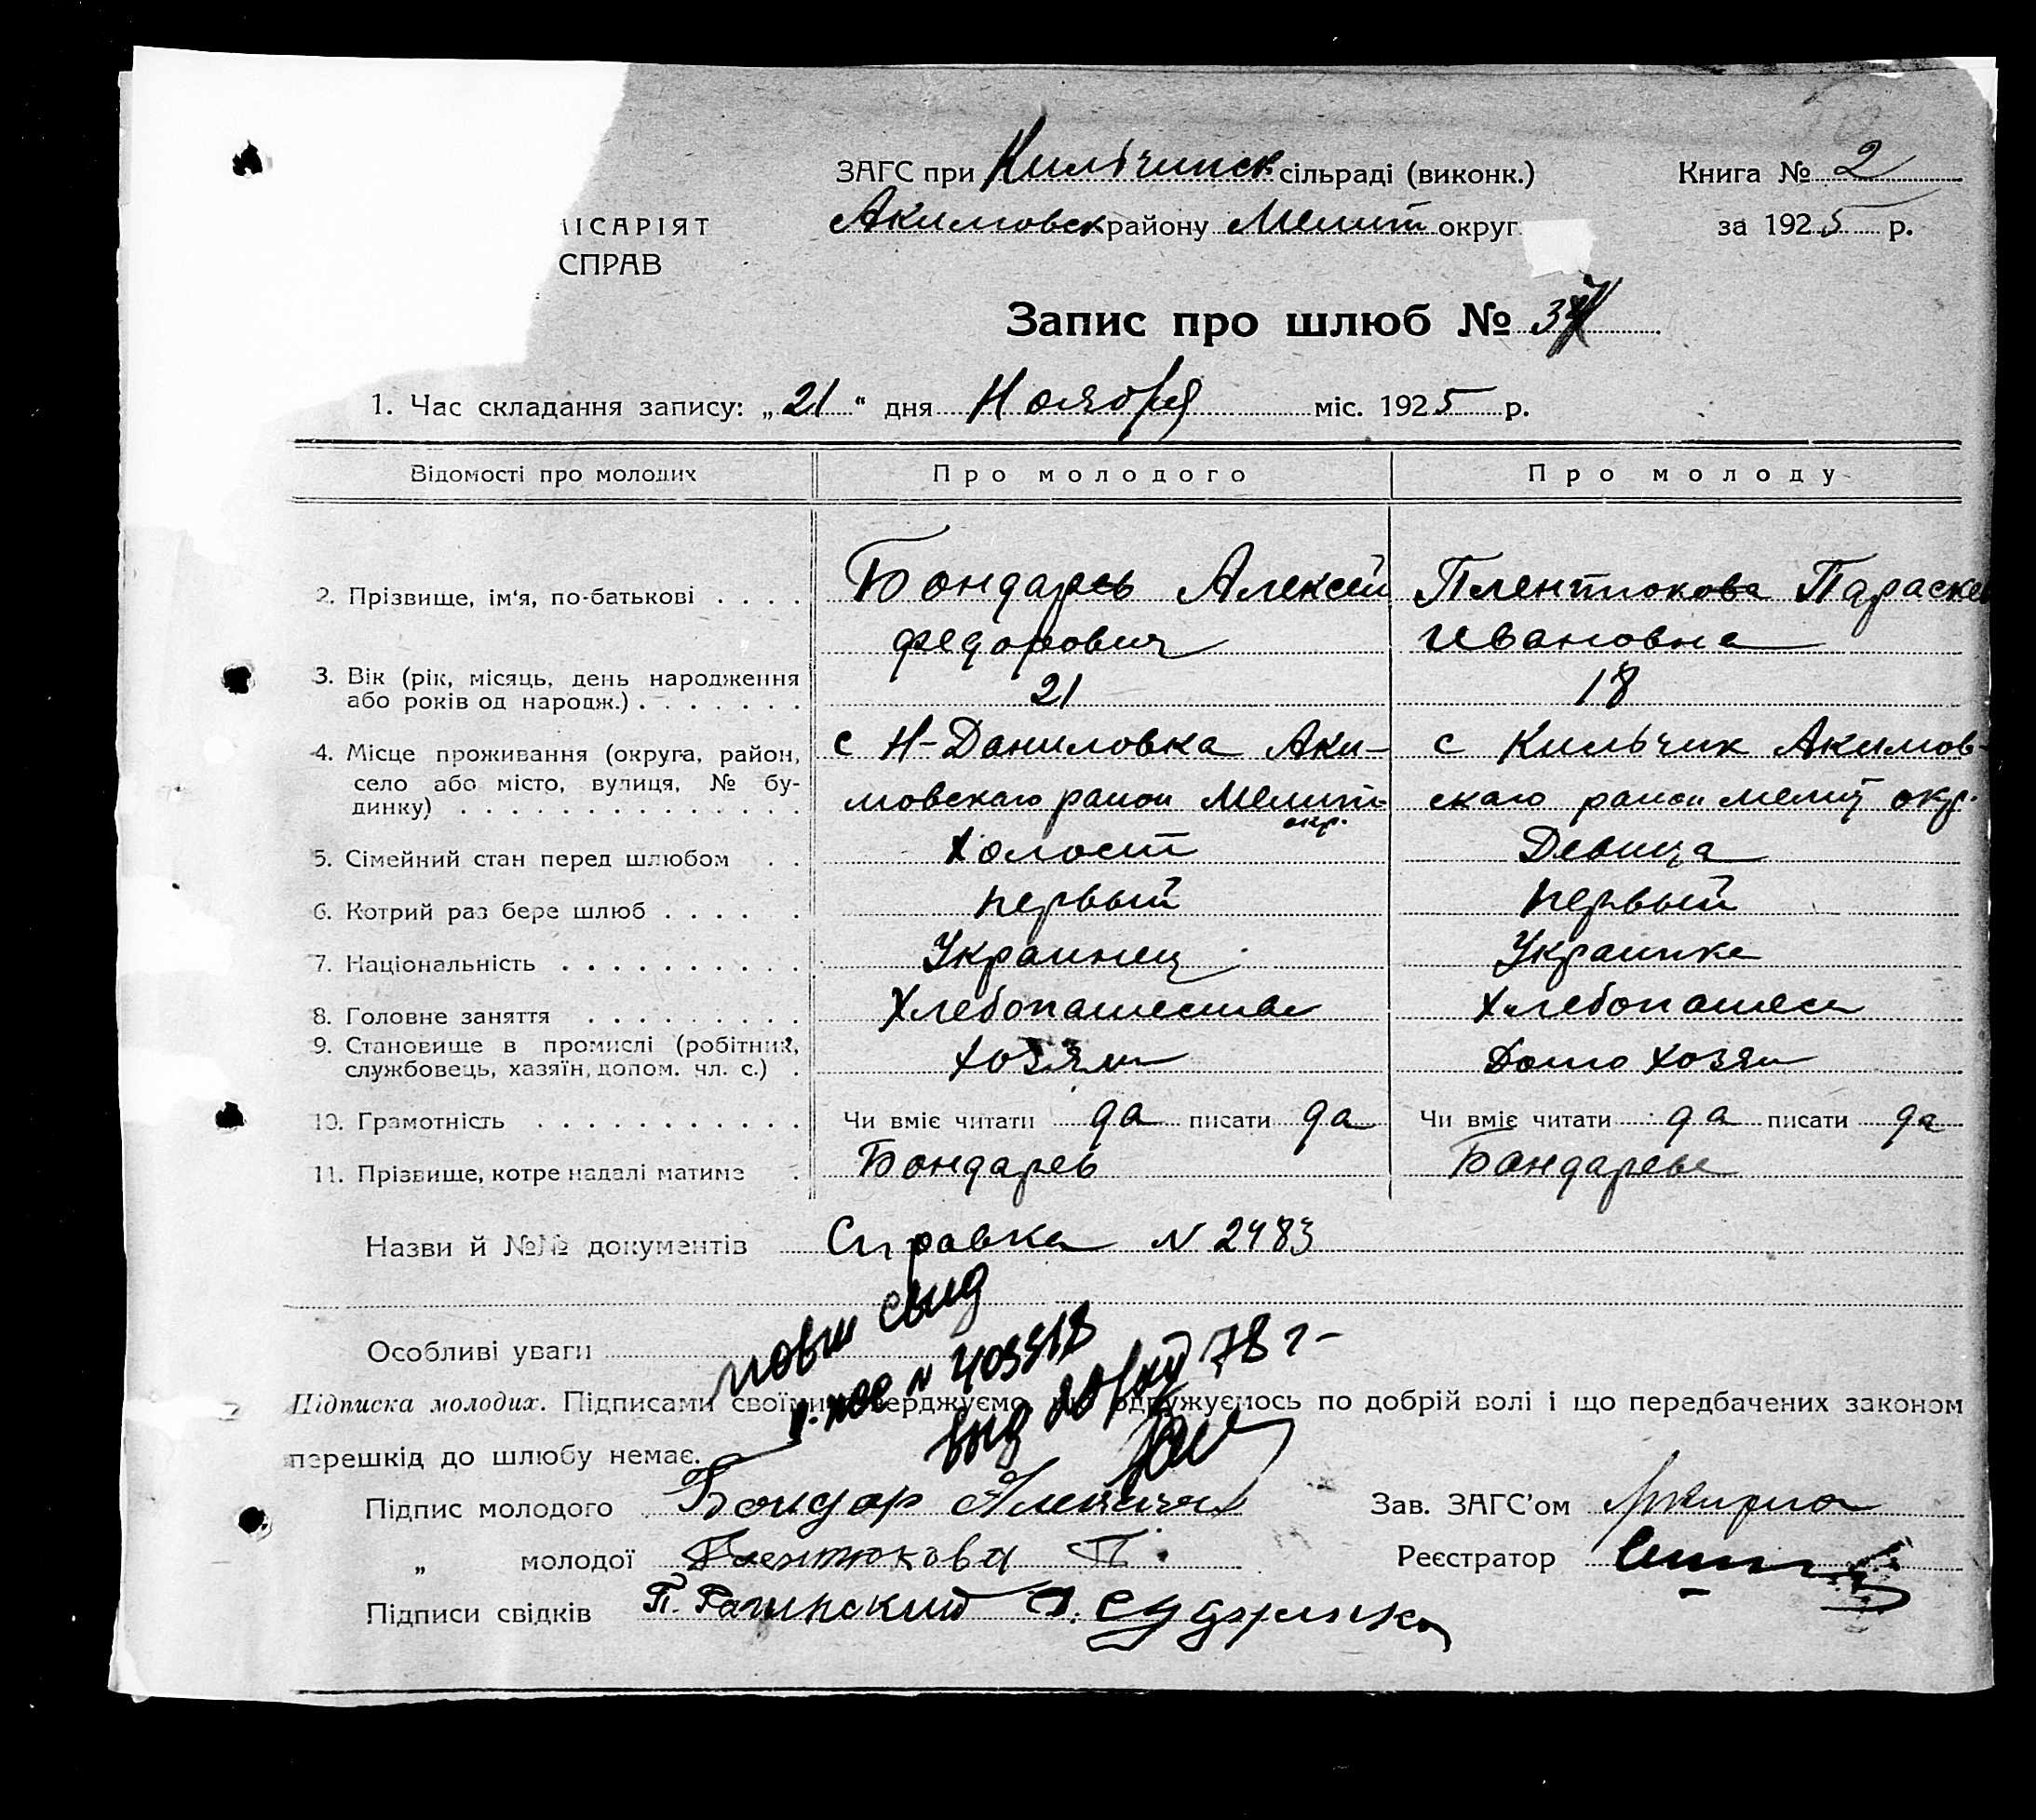 ЗАГС при Кильчинск сільраді (виконк.) Книга № 2
Акимовск району Мелит округ за 1925 р.
МІСАРІЯТ
СПРАВ
Запис про шлюб №
1. Час складання запису: „21“ дня Ноября міс. 1925 р.
Відомості про молодих Про молодого Про молоду
2. Прізвище, ім'я, по-батькові . . . . Бондарев Алексей Плентюкова Параске
Федорович Ивановна
3. Вік (рік, місяць, день народження
або років од народж.) . . . . . . . 21 18
4. Місце проживання (округа, район, с Н-Даниловка Аки- с Кильчик Акимов-
село або місто, вулиця, № бу-
динку) . . . . . . . . . . . . . . мовскаго район Мелит- скаго район мелит окр.
окр.
5. Сімейний стан перед шлюбом . . Холост Девица
6. Котрий раз бере шлюб . . . . . первый первый
7. Національність . . . . . . . . . . Украинец Украинка
8. Головне заняття . . . . . . . . . Хлебопашество Хлебопашес
9. Становище в промислі (робітник,
службовець, хазяїн, допом. чл. с.) . хозяин Домо хозяи
10. Грамотність . . . . . . . . . . . Чи вміє читати да писати да Чи вміє читати да писати да
11. Прізвище, котре надалі матиме . Бондарев Бондарева
Назви й №№ документів Справка N 2483
повт свид
Особливі уваги
N 403418
выд 78 г-
Підписка молодих. Підписами своїми верджуємо одружуємось по добрій волі і що передбачених законом
перешкід до шлюбу немає.
Підпис молодого Бондар Зав. ЗАГС'ом
„ молодої Плентюкова П. Реєстратор
Підписи свідків П. Рагинский